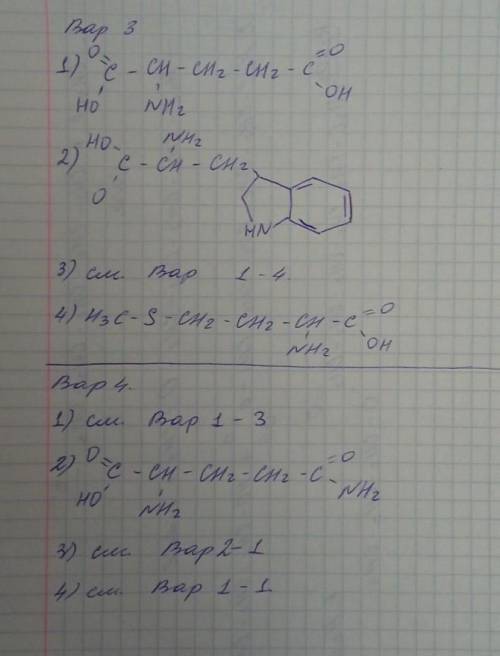 Вар 3
1) O=C(HO) - CH(NH2) - CH2 - CH2 - C(=O)OH
2) HO C(O) - CH(NH2) - CH2 HN
3) см. Вар 1-4.
4) H3C - S - CH2 - CH2 - CH(NH2) - C(=O)OH
Вар 4.
1) см. Вар 1-3
2) O=C(HO) - CH(NH2) - CH2 - CH2 - C(=O)NH2
3) см. Вар 2-1
4) см. Вар 1-1